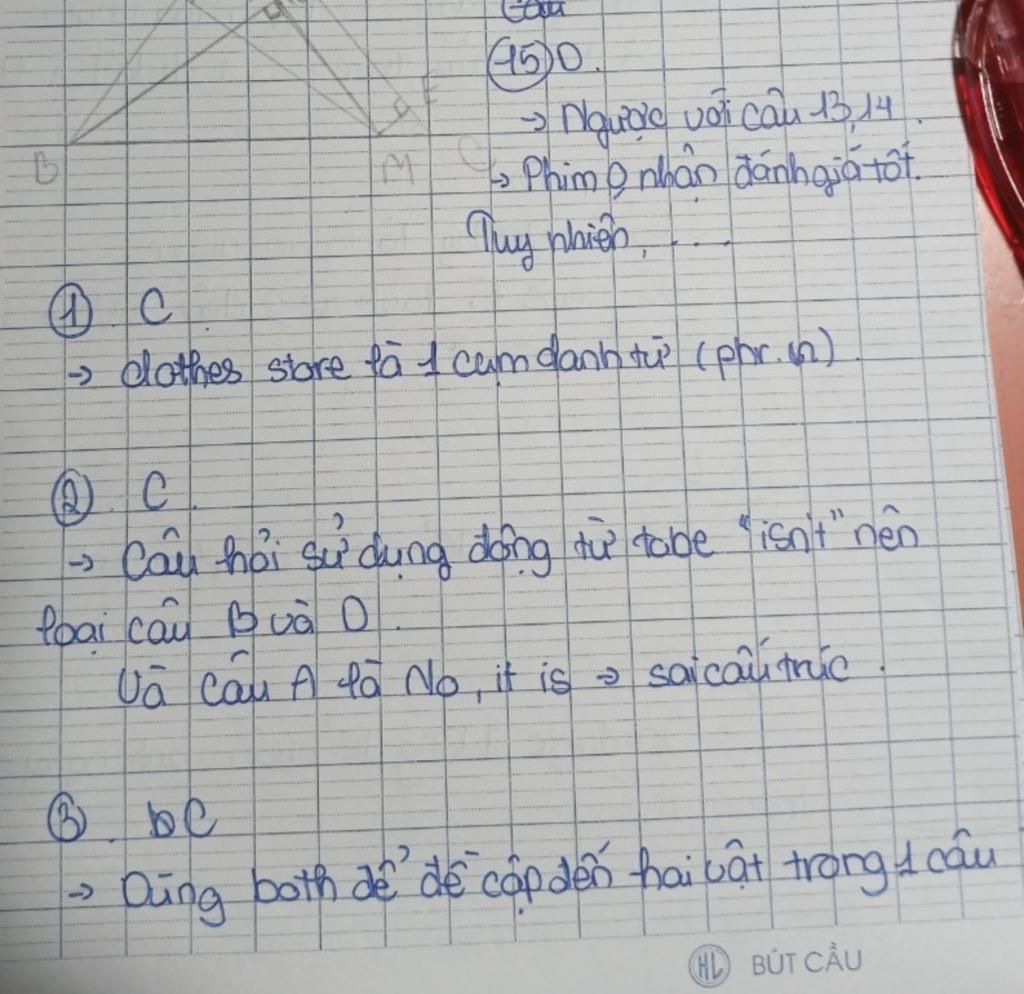 Câu
15) D.
→ Ngược với câu 13, 14.
↳ Phim Q nhận đánh giá tốt.
Tuy nhiên, .....
① C.
→ clothes store là 1 cụm danh từ (phr. n)
② C.
→ Câu hỏi sử dụng động từ tobe "isn't" nên
loại câu B và D.
Và câu A là No, it is → sai cấu trúc.
③. C
→ Dùng both để đề cập đến hai vật trong 1 câu
B M C E
HL BÚT CẦU